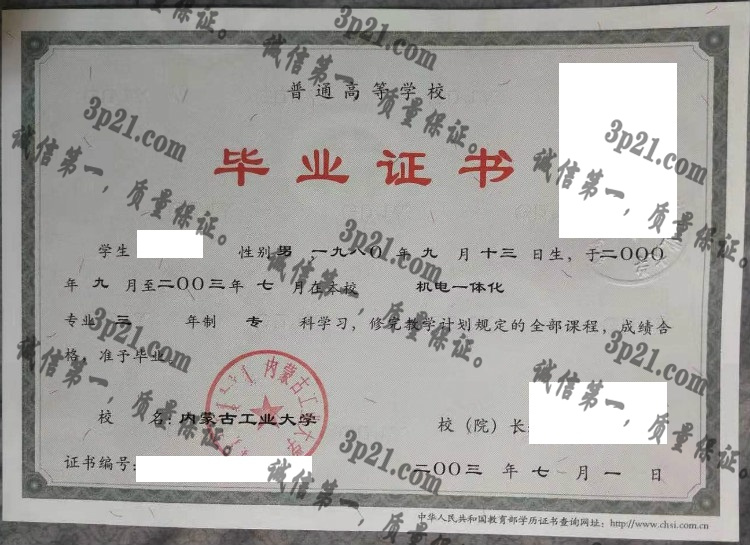 普通高等学校
毕业证书
学生 性别 男 ,一九八〇年 九 月 十三 日生, 于二〇〇〇
年 九 月至二〇〇三年 七 月在本校 机电一体化
专业 三 年制 专 科学习, 修完教学计划规定的全部课程, 成绩合
格, 准予毕业
内蒙古工业大学
校 名: 内蒙古工业大学 校（院）长:
证书编号: 二〇〇三 年 七 月 一 日
中华人民共和国教育部学历证书查询网址: http://www.chsi.com.cn
3p21.com
诚信第一，质量保证。
3p21.com
诚信第一，质量保证。
3p21.com
诚信第一，质量保证。
3p21.com
诚信第一，质量保证。
3p21.com
诚信第一，质量保证。
3p21.com
诚信第一，质量保证。
3p21.com
诚信第一，质量保证。